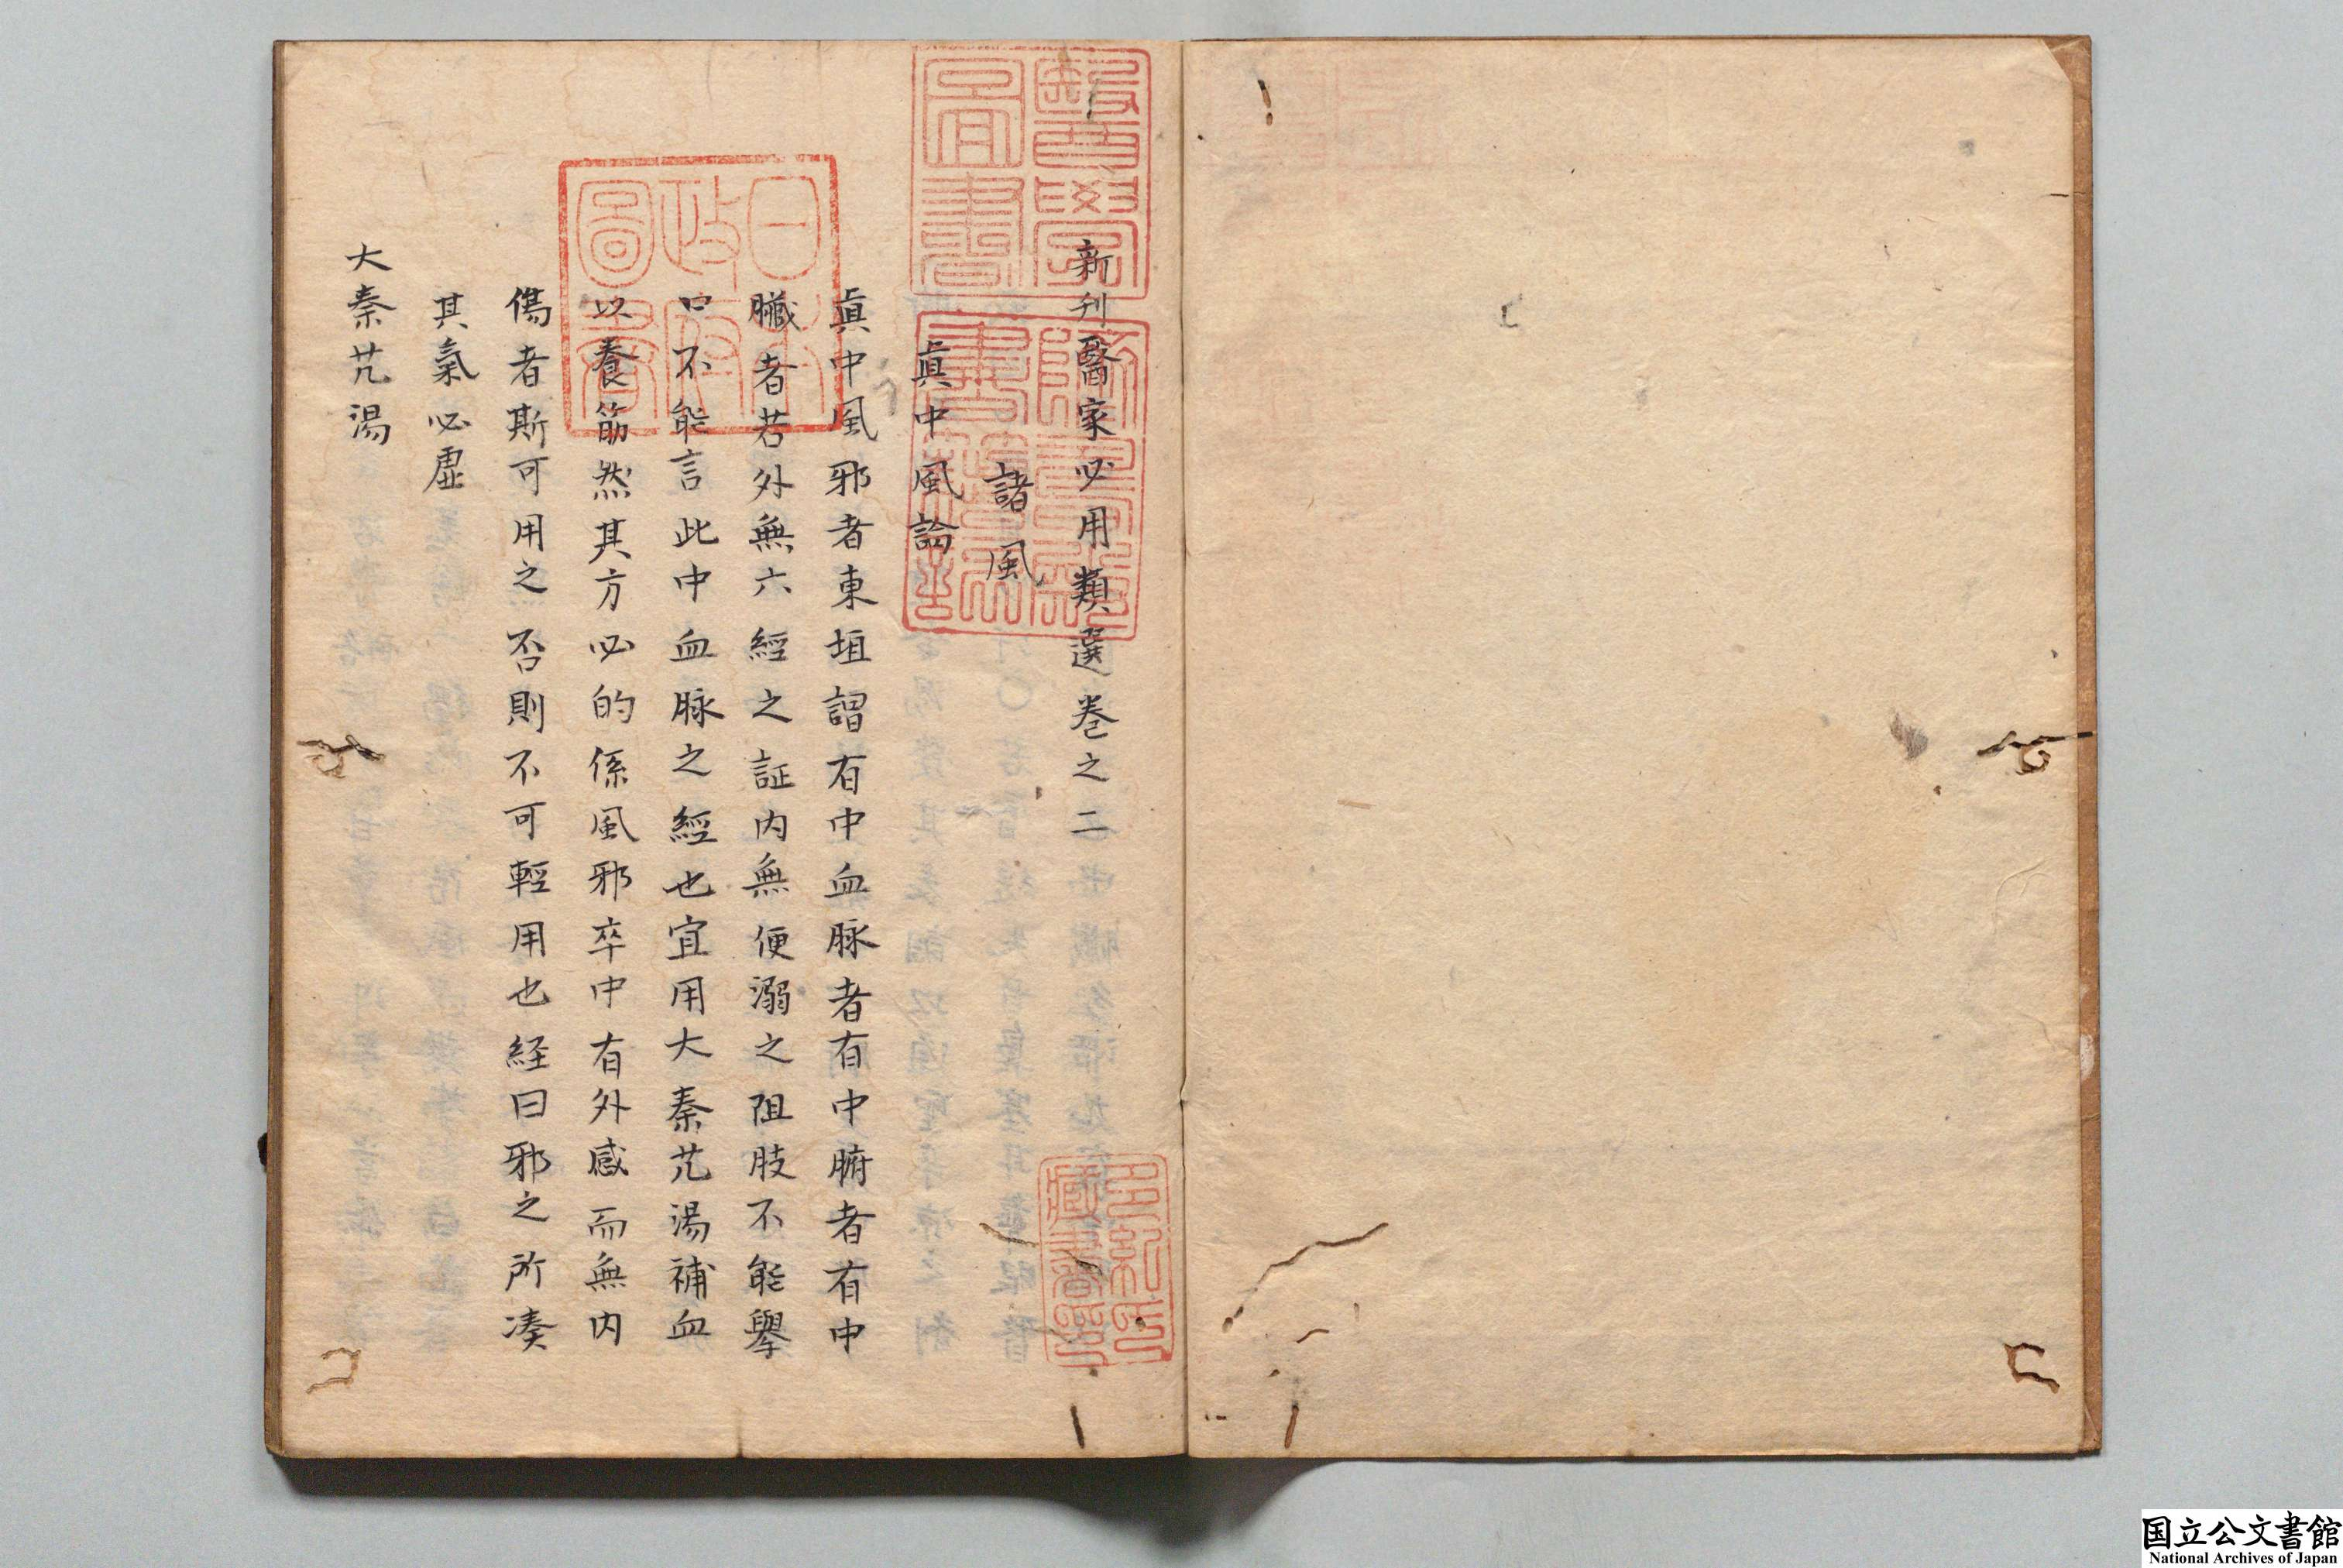 新刋醫家必用類選卷之二
諸風
眞中風論
眞中風邪者東垣謂有中血脉者有中腑者有中
臟者若外無六經之証内無便溺之阻肢不能舉
口不能言此中血脉之經也宜用大秦艽湯補血
以養筋然其方必的係風邪卒中有外感而無内
傷者斯可用之否則不可輕用也経曰邪之所湊
其氣必虛
大秦艽湯
醫學圖書
躋壽殿書籍記
日本政府圖書
多紀氏藏書印
国立公文書館
National Archives of Japan